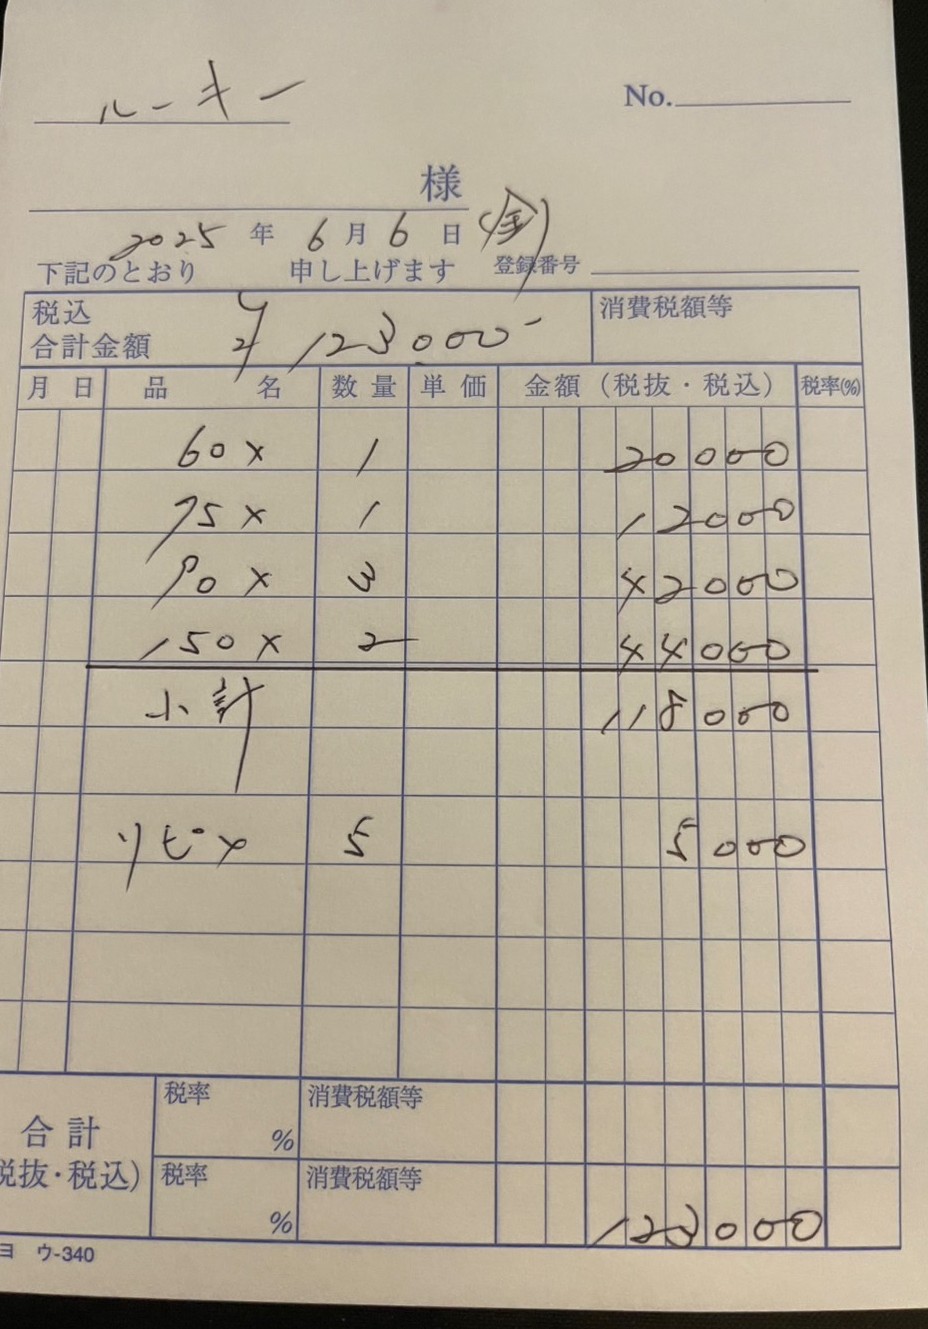 ルーキー
No.
様
2025年6月6日(金)
下記のとおり 申し上げます 登録番号
税込合計金額 ¥123000- 消費税額等
月 日 品名 数量 単価 金額(税抜・税込) 税率(%)
60× 1 20000
75× 1 12000
90× 3 42000
150× 2 44000
小計 118000
リピ× 5 5000
合計 税率 % 消費税額等
税抜・税込) 税率 % 消費税額等 123000
ヨ ウ-340